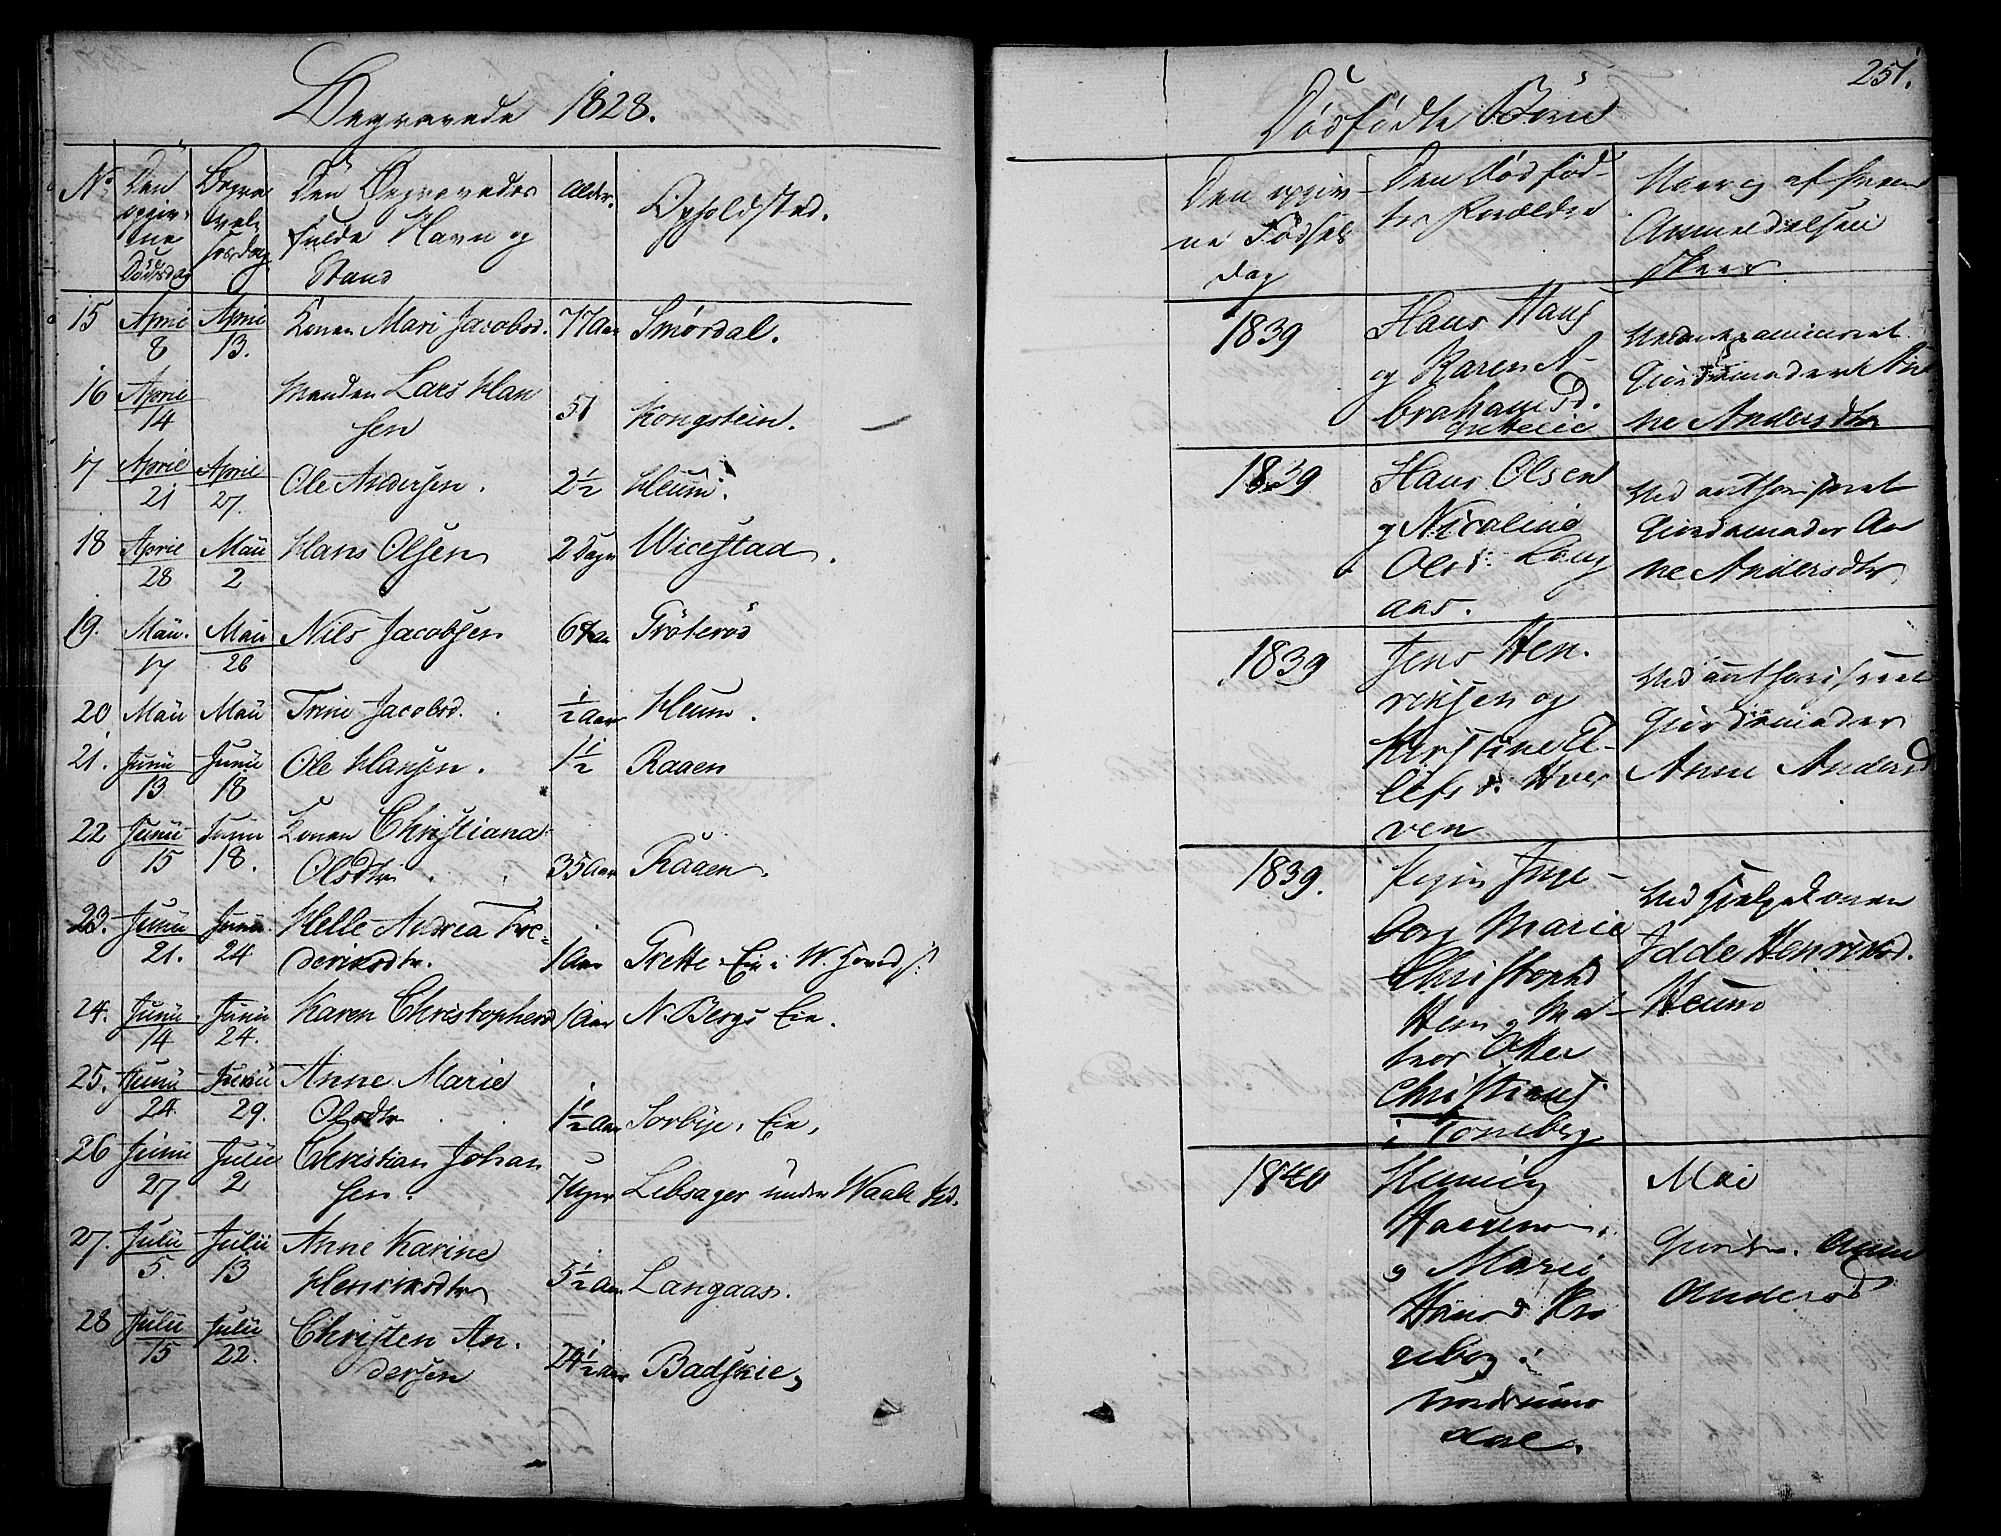 Begravede 1828.
No
Den opgivne Dødsdag
Begravelsesdag
Den Begravedes fulde Navn og Stand
Alder.
Opholdsted.
15 April 8 April 13. Konen Mari Jacobsd. 77 Aar Smørdal.
16 April 14 Manden Lars Hansen 51 Kongstein.
17 April 21 April 27. Ole Andersen. 2½ Heum.
18 April 28 Maii 2 Hans Olsen 2 Dage Wicestad.
19. Maii. 17 Maii 26 Nils Jacobsen 64 Aar Trøterød
20 Maii Maii Trine Jacobsd. ½ Aar Heum.
21. Junii 13 Junii 18 Ole Hansen. 1½ Raaen
22 Junii 15 Junii 18. Konen Christiana Olsdtr 35 Aar Raaen.
23. Junii 21. Junii 24 Helle Andrea Frederiksdtr. 1 Aar Grette Eie i W.
24. Junii 14 Junii 24. Karen Christophersd 1 Aar N. Bergs Eie.
25. Junii 24 Junii 29. Anne Marie Olsdtr 1½ Aar Sorbye, Eie,
26 Junii 27 Julii 2 Christian Johansen. 7 Uger Lebsager under Waale
27. Julii 5. Julii 13 Anne Karine Henriksdtr 5½ Aar Langaas.
28 Julii 15 Julii 22. Christen Andersen 24½ Aar Badskie,
251.
Dødfødte Børn
Den opgivne Fødselsdag
Den Dødfødtes Forældre
Hvor og af hvem Anmeldelsen skeer
1839
Hans Hans
og Karen Abrahamsd.
Ved examineret
Giordemoder Anne Andersdtr
1839
Hans Olsen
og Nicoline
Olsd. Langaas.
Ved authoriseret
Giordemoder Anne Andersdtr
1839
Jens Henriksen og
Kirstine Elefsd. Hverven
Ved authoriseret
Giordemoder
Anne Andersd
1839.
Pigen Ingeborg Marie
Christophd
Hem og Matros Otter
Christians
i Tønsberg
Ved Hielpekonen
Idde Henriksd.
Heum
1840
Henrig
og Marie
i
Mai
Anne
Andersd